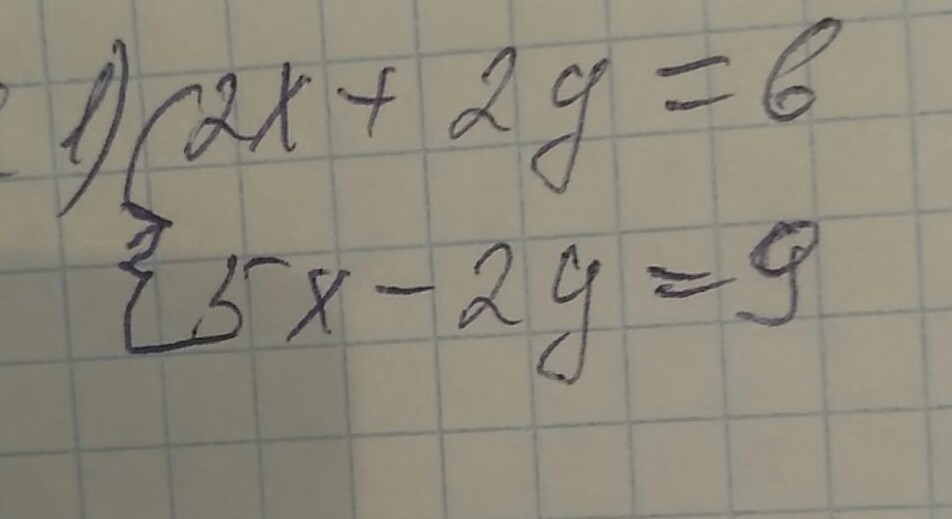 1) { 2x + 2y = 6
5x - 2y = 9